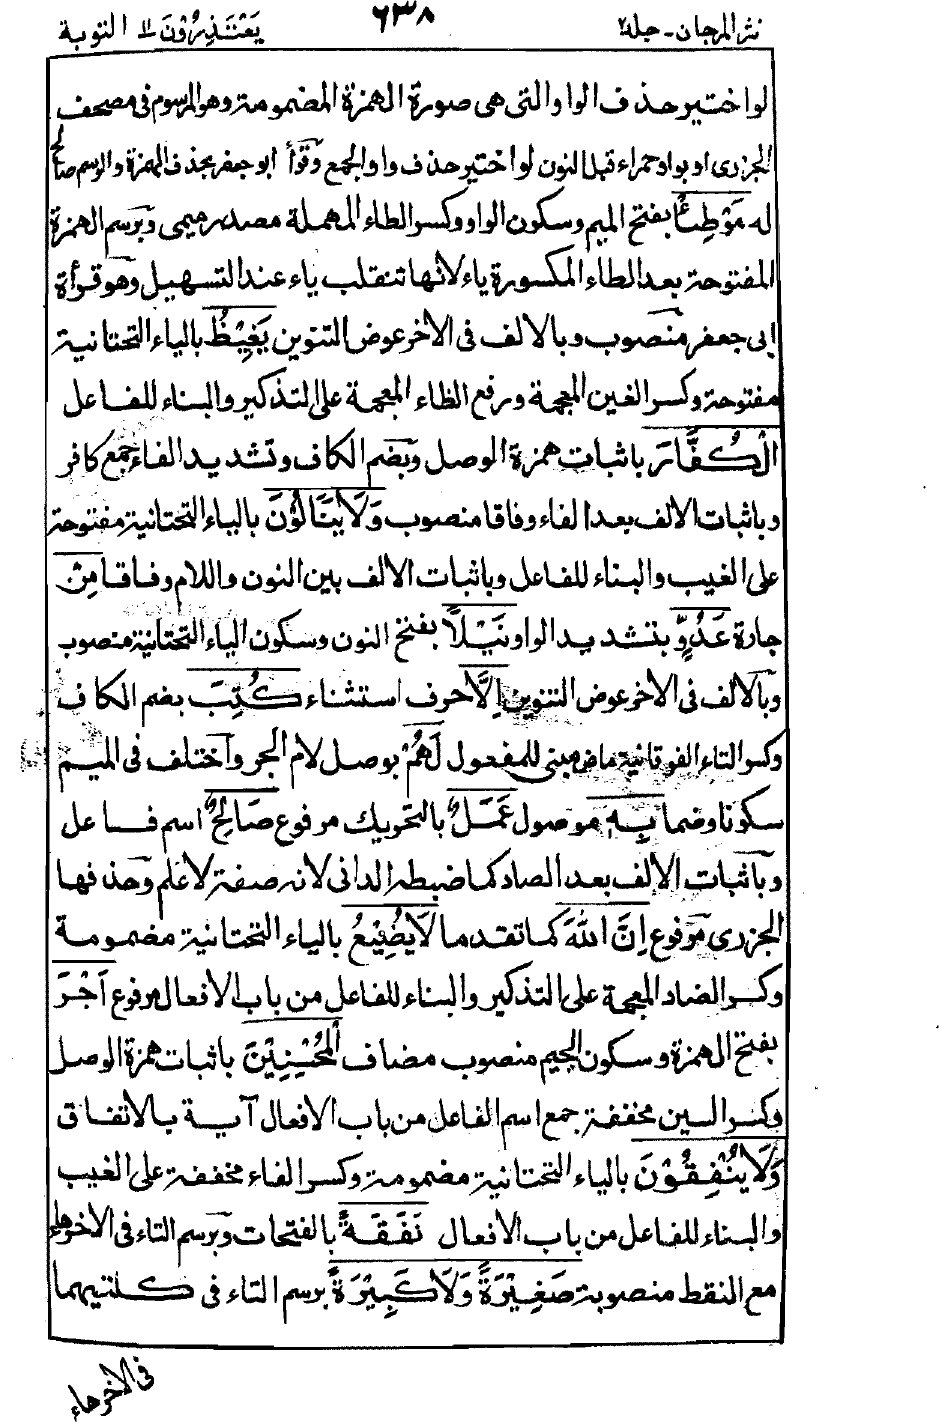 نثر المرجان - جلد ٢ ٦٣٨ يَعْتَذِرُوْنَ ١١ التوبة
لو اختير حذف الواو التى هى صورة الهمزة المضمومة وهو المرسوم فى مصحف
الجزرى او بواو حمراء قبل النون لو اختير حذف واو الجمع وقرأ ابو جعفر بحذف الهمزة والرسم صالح
له مَوْطِئًا بفتح الميم وسكون الواو وكسر الطاء المهملة مصدر ميمى وبرسم الهمزة
المفتوحة بعد الطاء المكسورة ياء لانها تنقلب ياء عند التسهيل وهو قرأة
ابى جعفر منصوب وبالالف فى الآخر عوض التنوين يَغِيْظُ بالياء التحتانية
مفتوحة وكسر الغين المعجمة ورفع الظاء المعجمة على التذكير والبناء للفاعل
الْكُفَّارَ باثبات همزة الوصل وبضم الكاف وتشديد الفاء جمع كافر
وباثبات الالف بعد الفاء وفاقا منصوب وَلَا يَنَالُوْنَ بالياء التحتانية مفتوحة
على الغيب والبناء للفاعل وباثبات الالف بين النون واللام وفاقا مِنْ
جارة عَدُوٍّ بتشديد الواو نَيْلًا بفتح النون وسكون الياء التحتانية منصوب
وبالالف فى الاخر عوض التنوين اِلَّا حرف استثناء كُتِبَ بضم الكاف
وكسر التاء الفوقانية ماض مبنى للمفعول لَهُمْ بوصل لام الجر واختلف فى الميم
سكونا وضما بِهٖ موصول عَمَلٌ بالتحريك مرفوع صَالِحٌ اسم فاعل
وباثبات الالف بعد الصاد كما ضبطه الدانى لانه صفة لا علم وحذفها
الجزرى مرفوع اِنَّ اللهَ كما تقدما لَا يُضِيْعُ بالياء التحتانية مضمومة
وكسر الضاد المعجمة على التذكير والبناء للفاعل من باب الافعال مرفوع اَجْرَ
بفتح الهمزة وسكون الجيم منصوب مضاف الْمُحْسِنِيْنَ باثبات همزة الوصل
وكسر السين مخففة جمع اسم الفاعل من باب الافعال آية بالاتفاق
وَلَا يُنْفِقُوْنَ بالياء التحتانية مضمومة وكسر الفاء مخففة على الغيب
والبناء للفاعل من باب الافعال نَفَقَةً بالفتحات وبرسم التاء فى الاخر هاء
مع النقط منصوبة صَغِيْرَةً وَلَا كَبِيْرَةً برسم التاء فى كلتيهما
فى الاخر هاء